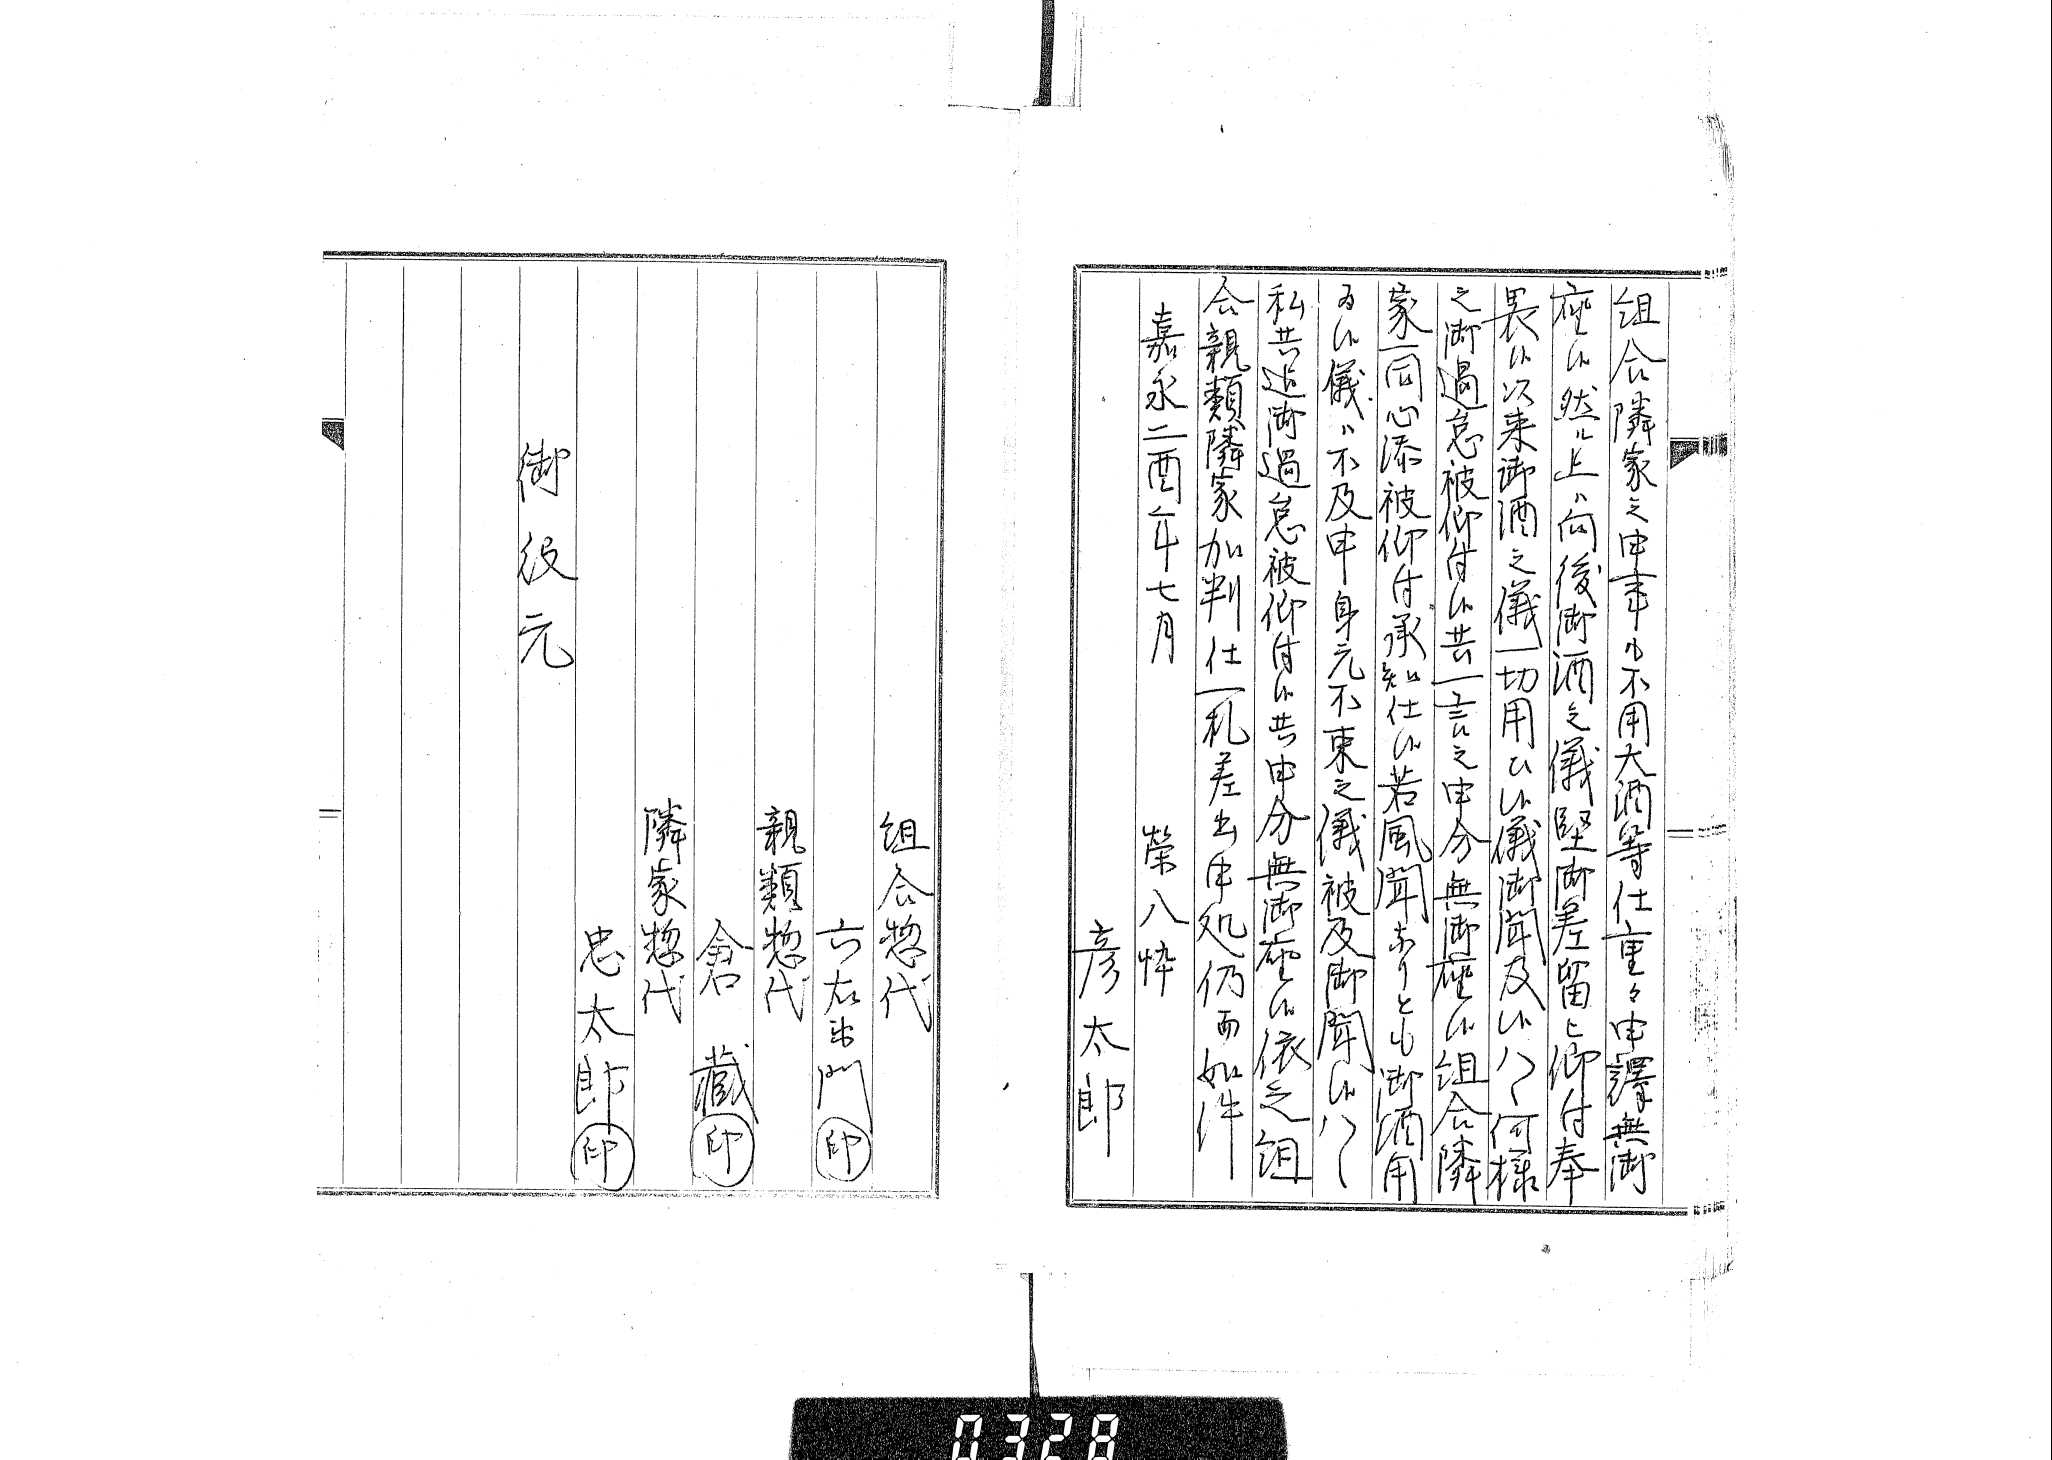 組合隣家之申事も不用大酒等仕重々申譯無御
座候然ル上ハ向後御酒之儀堅御差留ニ仰付奉
畏候以来御酒之儀一切用ひ候儀御聞及候ハヽ何様
之御過怠被仰付候共一言之申分無御座候組合隣
家一同心添被仰付承知仕候若風聞ありとも御酒用
ゐ候儀ハ不及申身元不束之儀被及御聞候ハヽ
私共迄御過怠被仰付候共申分無御座候依之組
合親類隣家加判仕一札差出申処仍而如件
嘉永二酉年七月
榮八悴
彦太郎
組合惣代
六右衛門㊞
親類惣代
倉藏㊞
隣家惣代
忠太郎㊞
御役元
0328